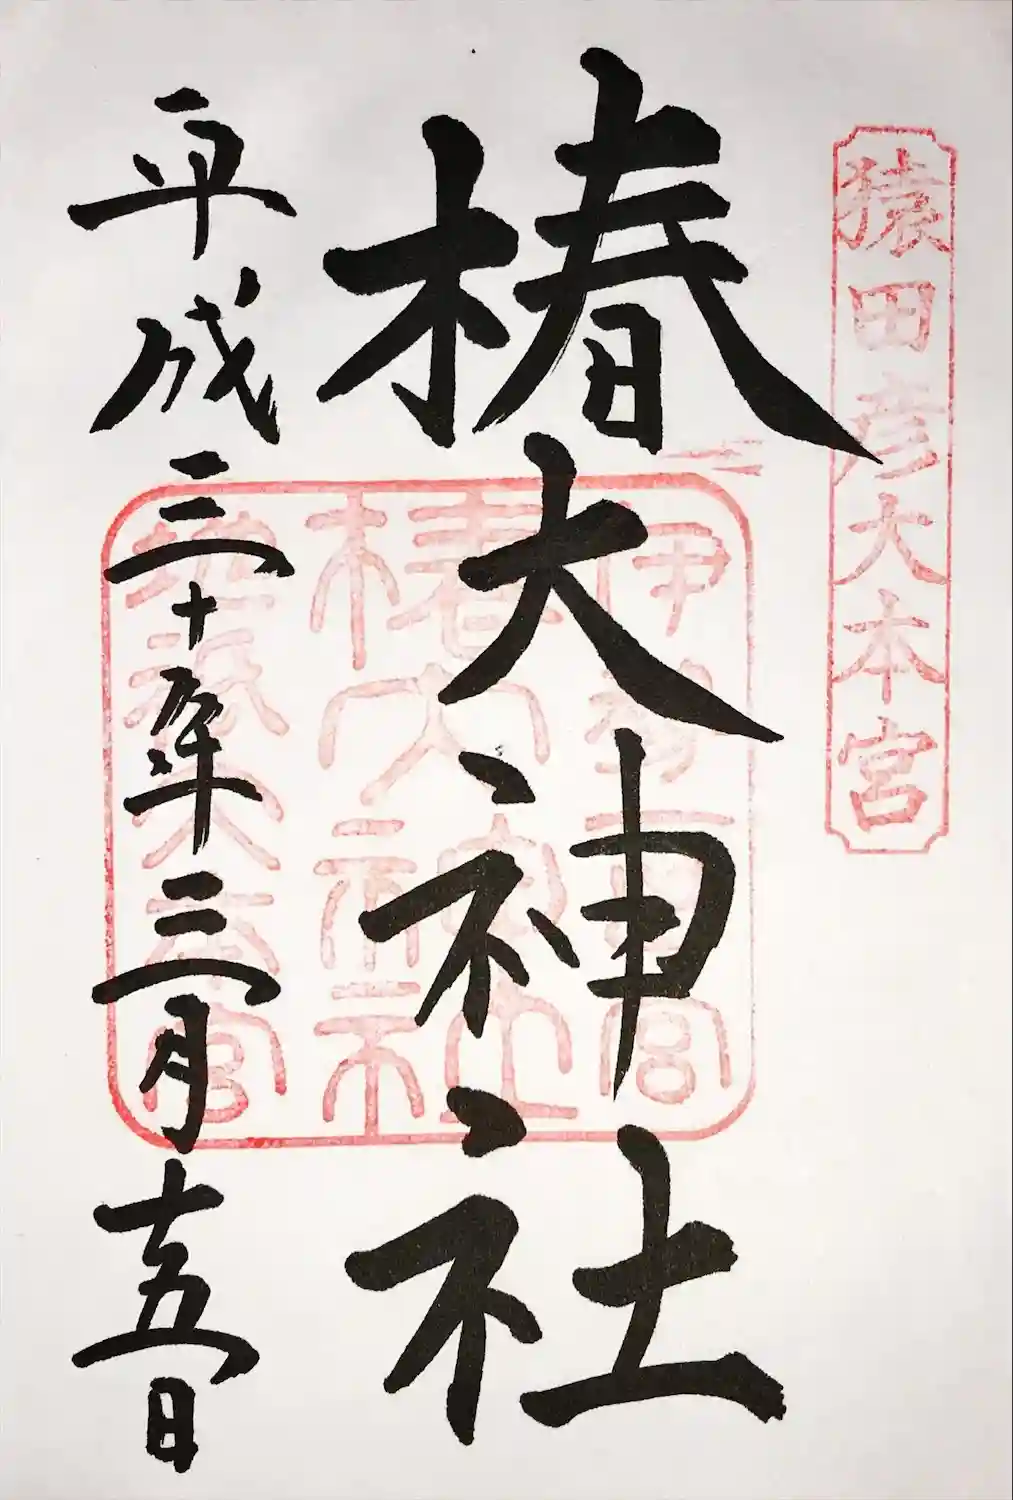 猿田彦大本宮
椿大神社
伊勢一宮
椿大神社
猿田彦大本宮
平成三十年三月十五日